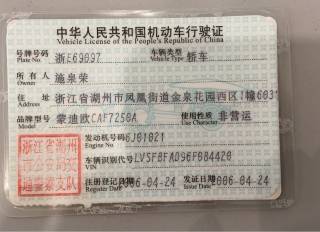 中华人民共和国机动车行驶证
Vehicle License of the People's Republic of China
号牌号码 浙E69097 车辆类型 轿车
Plate No. Vehicle Type
所有人 施泉荣
Owner
住址 浙江省湖州市凤凰街道金泉花园西区1幢603
Address
品牌型号 蒙迪欧CAF7250A 使用性质 非营运
Model Use Character
发动机号码 6J01021
Engine No.
车辆识别代号
VIN
注册登记日期 2006-04-24 发证日期 2006-04-24
Register Date Issue Date
浙江省湖州